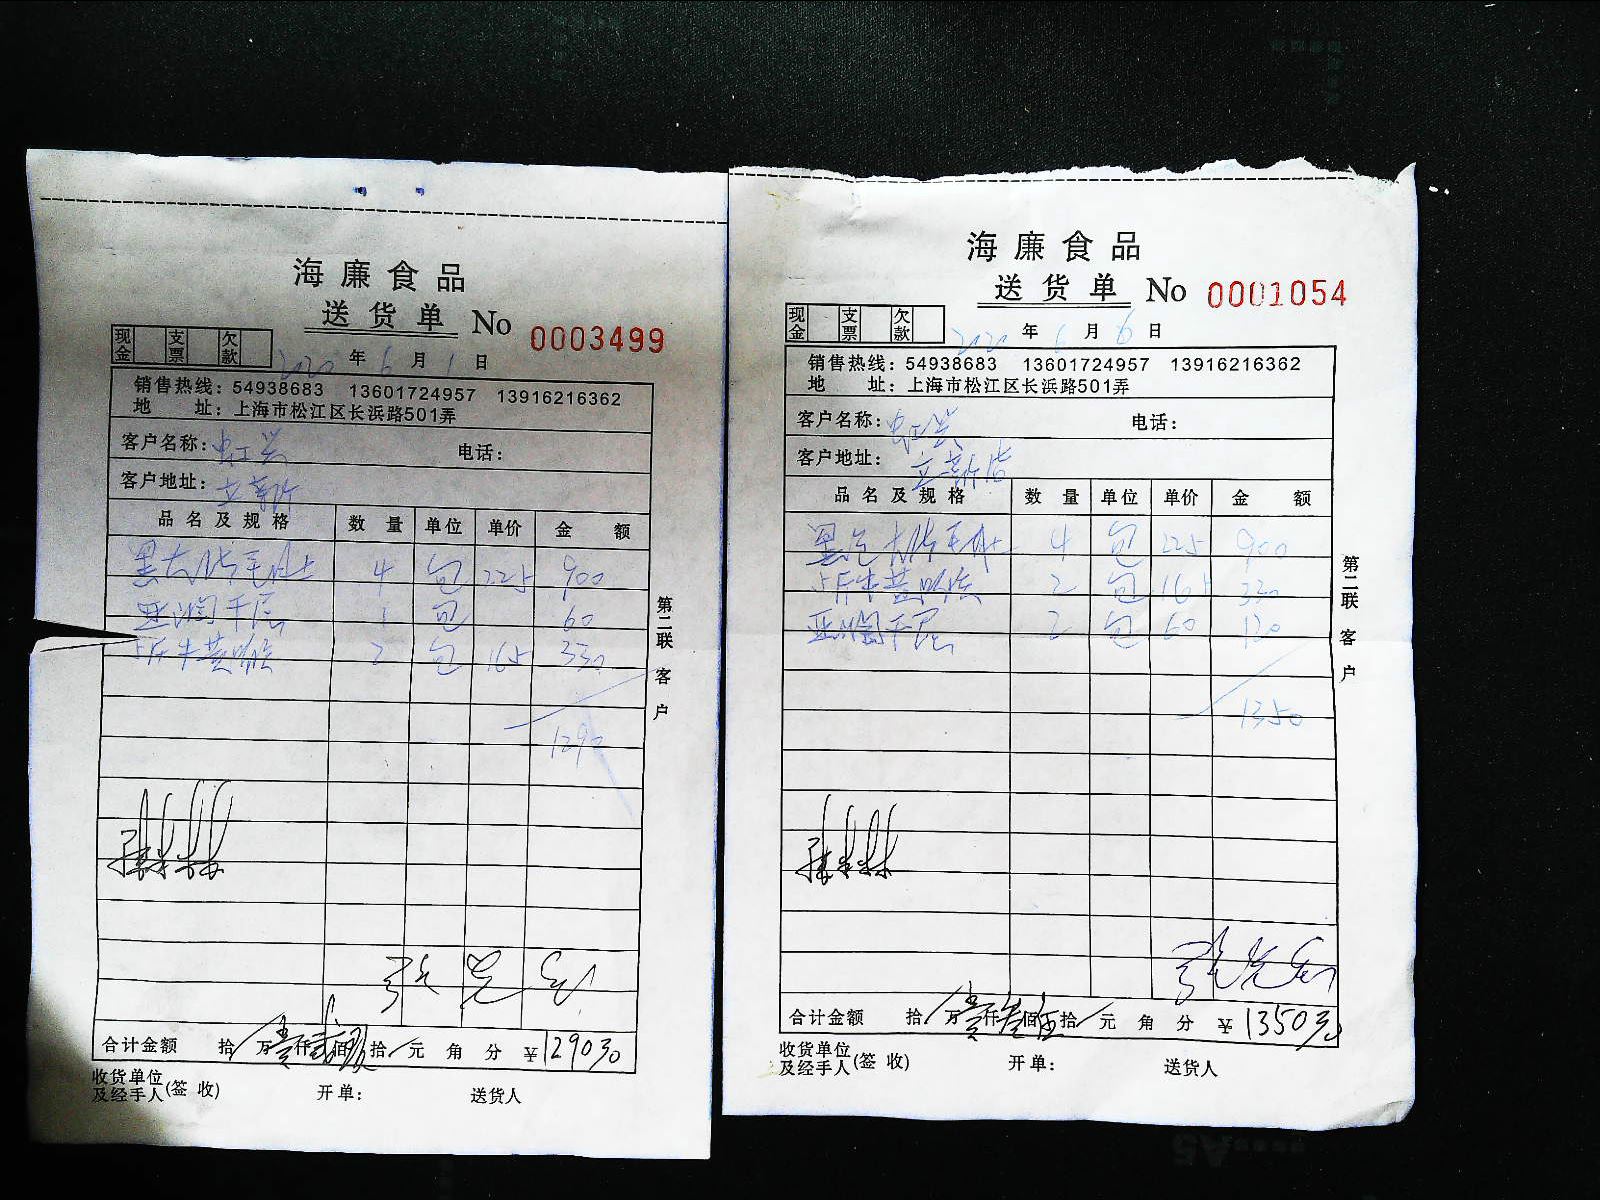 海廉食品
送货单 No 0003499
现金 支票 欠款
2020 年 6 月 1 日
销售热线: 54938683 13601724957 13916216362
地 址: 上海市松江区长浜路501弄
客户名称: 虹兴
电话:
客户地址:
品名及规格 数量 单位 单价 金额
黑大 4 包 225 900
千层 1 包 60
5斤牛黄喉 2 包 165 330
1290
合计金额 拾 万 壹 仟 贰 佰 玖 拾 元 角 分 ¥1290元
收货单位及经手人(签收) 开单: 送货人
第二联 客户
海廉食品
送货单 No 0001054
现金 支票 欠款
2020 年 6 月 6 日
销售热线: 54938683 13601724957 13916216362
地 址: 上海市松江区长浜路501弄
客户名称: 虹兴
电话:
客户地址: 立新店
品名及规格 数量 单位 单价 金额
黑色大 4 包 225 900
5斤牛黄喉 2 包 165 330
千层 2 包 60 120
1350
合计金额 拾 万 壹 仟 叁 佰 伍 拾 元 角 分 ¥1350元
收货单位及经手人(签收) 开单: 送货人
第二联 客户